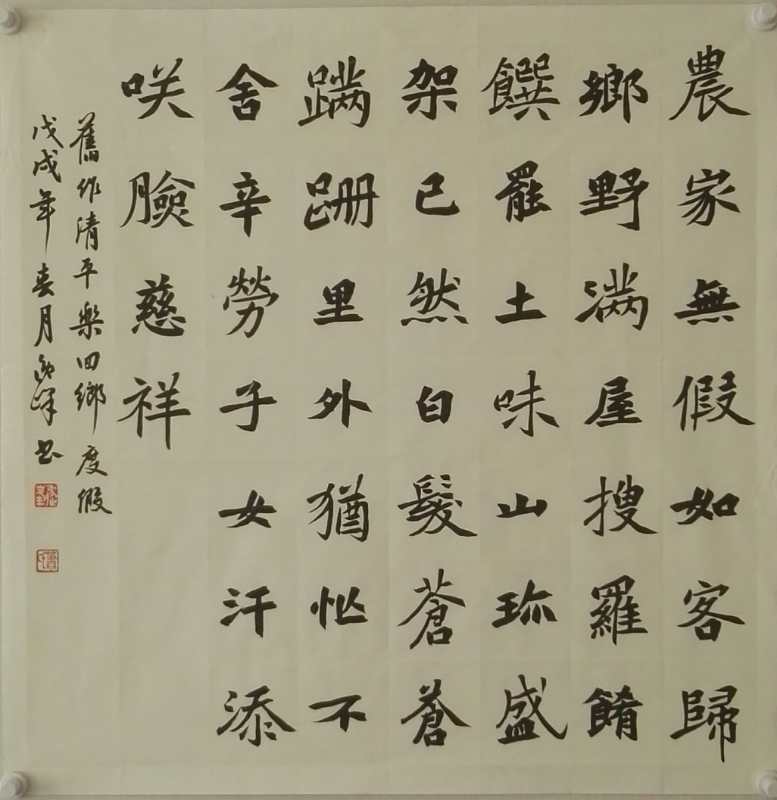 農家無假如客歸
鄉野滿屋搜羅餚
饌罷土味山珎盛
架已然白髮蒼蒼
蹣跚里外猶忙不
舍辛勞子女汗添
咲臉慈祥
舊作清平樂回鄉度假
戊戌年春月峰书